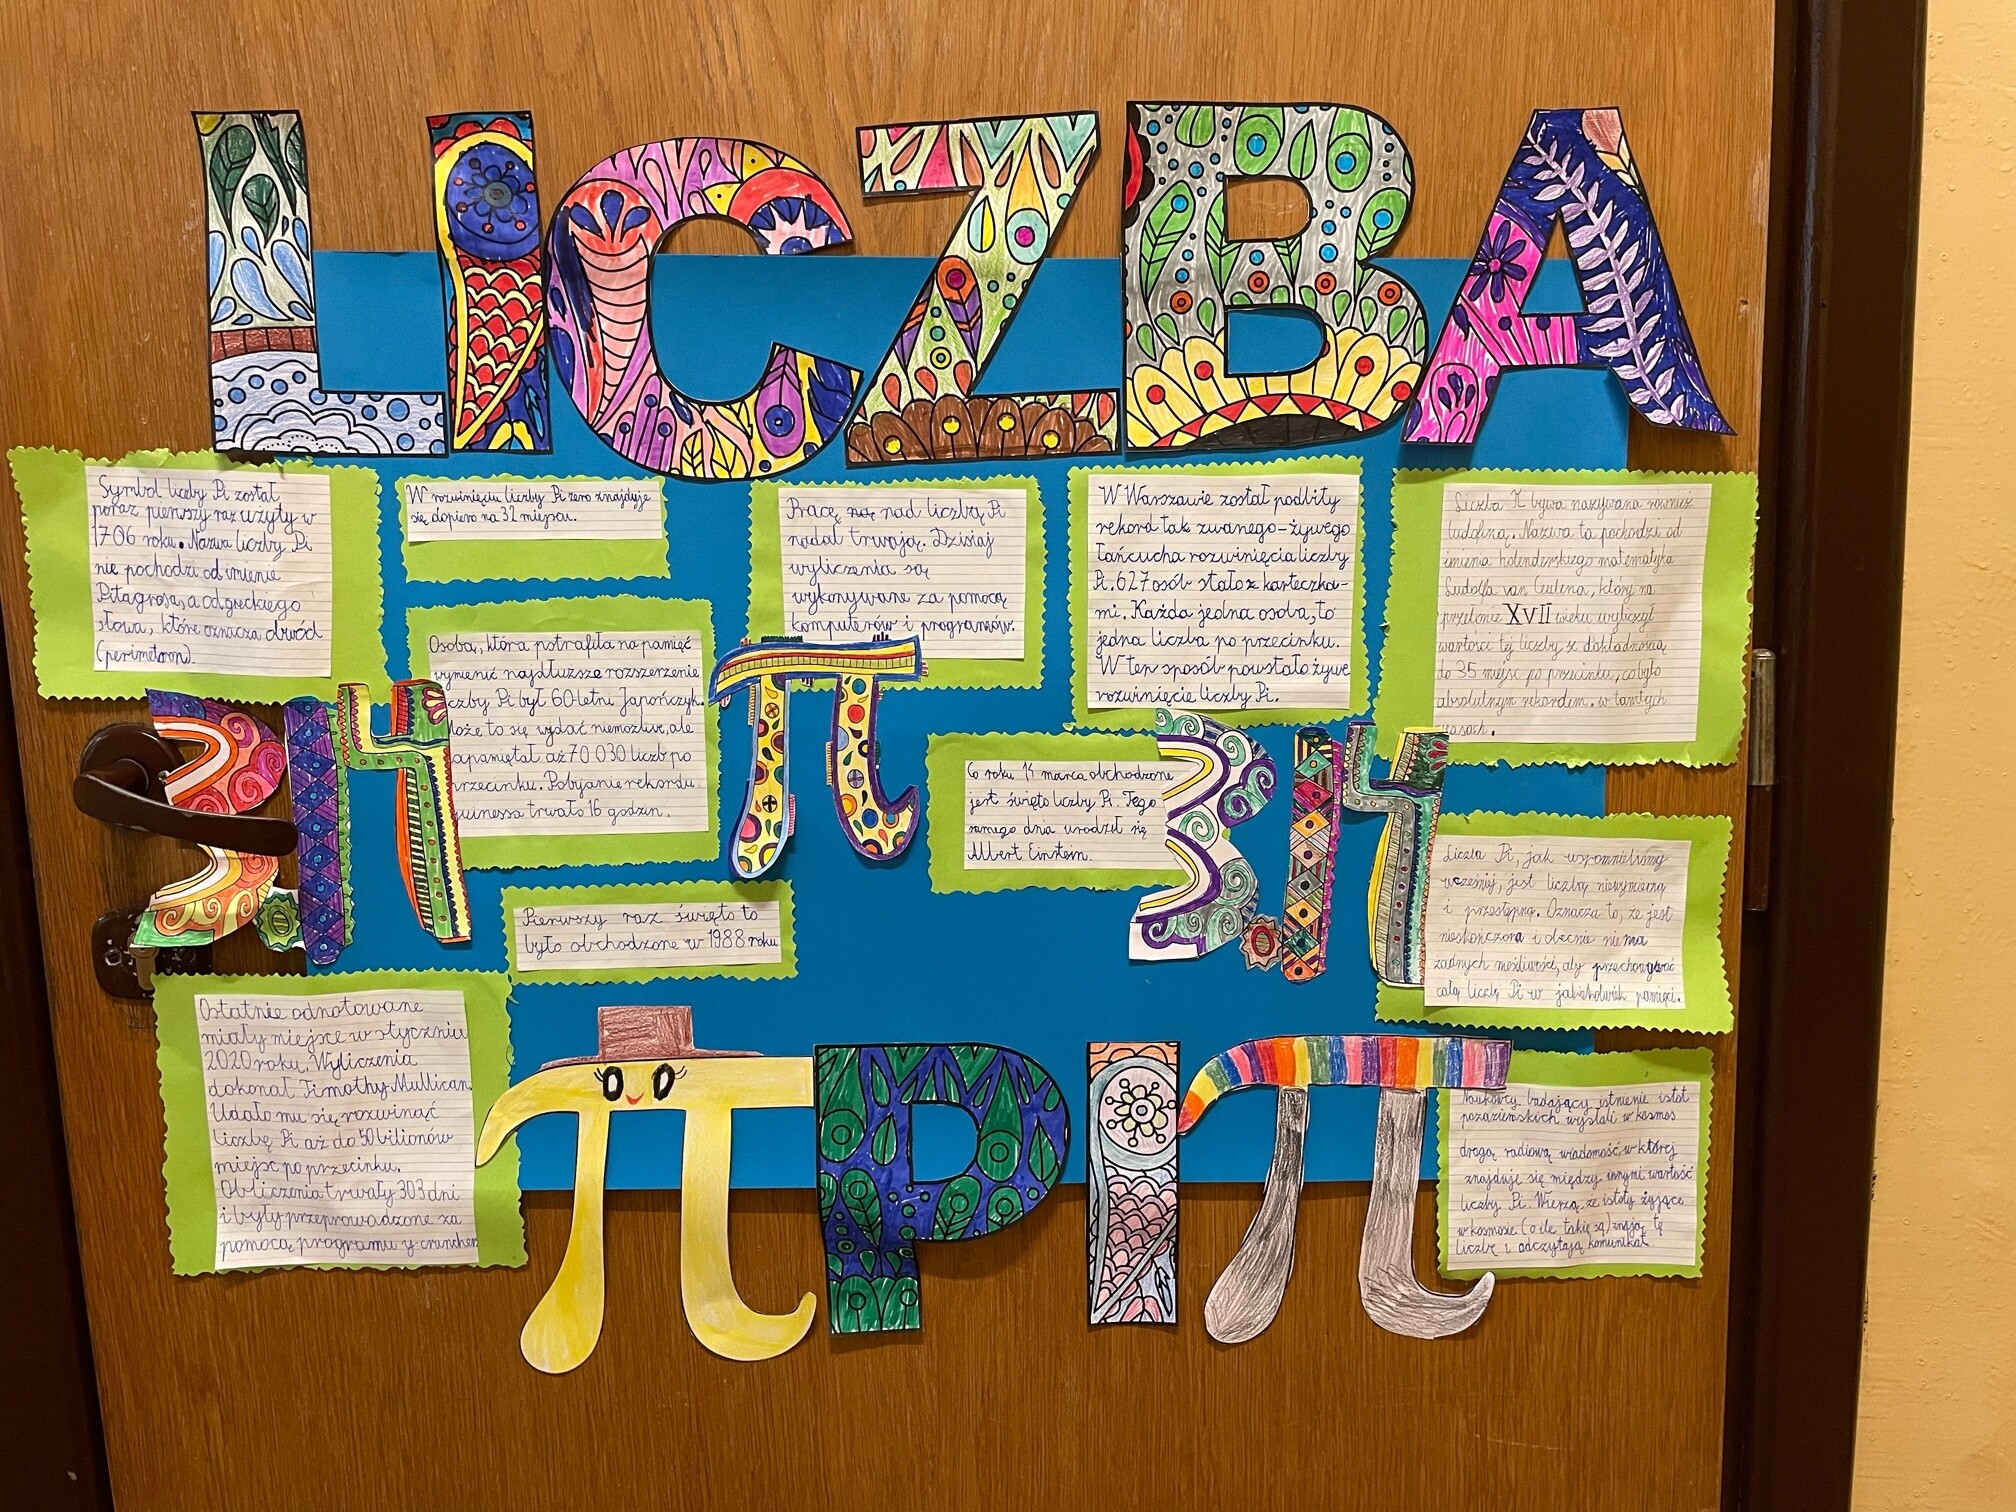 LICZBA
Symbol liczby Pi został
poraz pierwszy raz użyty w
1706 roku. Nazwa liczby Pi
nie pochodzi od imienie
Pitagrosa, a od greckiego
słowa, które oznacza obwód
(perimetron).
W rozwinięciu liczby Pi zero znajduje
się dopiero na 32 miejscu.
Pracę na nad liczbą Pi
nadal trwają. Dzisiaj
wyliczenia są
wykonywane za pomocą
komputerów i programów.
W Warszawie został podbity
rekord tak zwanego-żywego
łańcucha rozwinięcia liczby
Pi. 627 osób stało z karteczka-
mi. Każda jedna osoba, to
jedna liczba po przecinku.
W ten sposób powstało żywe
rozwinięcie liczby Pi.
Liczba π bywa nazywana również
ludolfiną. Nazwa ta pochodzi od
imienia holenderskiego matematyka
Ludolfa van Ceulena, który na
przełomie XVII wieku wyliczył
wartości tej liczby z dokładnością
do 35 miejsc po przecinku, co było
absolutnym rekordem. w tamtych
czasach.
Osobą, która potrafiła na pamięć
wymienić najdłuższe rozszerzenie
liczby Pi był 60 letni Japończyk.
Może to się wydać niemożliwe, ale
zapamiętał aż 70 030 liczb po
przecinku. Pobijanie rekordu
guinessa trwało 16 godzin.
π
3,14
Co roku 14 marca obchodzone
jest święto liczby Pi. Tego
samego dnia urodził się
Albert Einstein.
3,14
Liczba Pi, jak wspomnieliśmy
wcześniej, jest liczbą niewymierną
i przestępną. Oznacza to, że jest
nieskończona i obecnie nie ma
żadnych możliwości, aby przechowywać
całą liczbę Pi w jakiekolwiek pamięci.
Pierwszy raz święto to
było obchodzone w 1988 roku
Ostatnie odnotowane
miały miejsce w styczniu
2020 roku. Wyliczenia
dokonał Timothy Mullican.
Udało mu się rozwinąć
liczbę Pi aż do 50 bilionów
miejsc po przecinku.
Obliczenia trwały 303 dni
i były przeprowadzone za
pomocą programu y-cruncher
π PI π
Naukowcy badający istnienie istot
pozaziemskich wysłali w kosmos
drogą radiową wiadomość, w której
znajduje się między innymi wartość
liczby Pi. Wierzą, że istoty żyjące
w kosmosie (o ile takie są) znają tę
liczbę i odczytają komunikat.